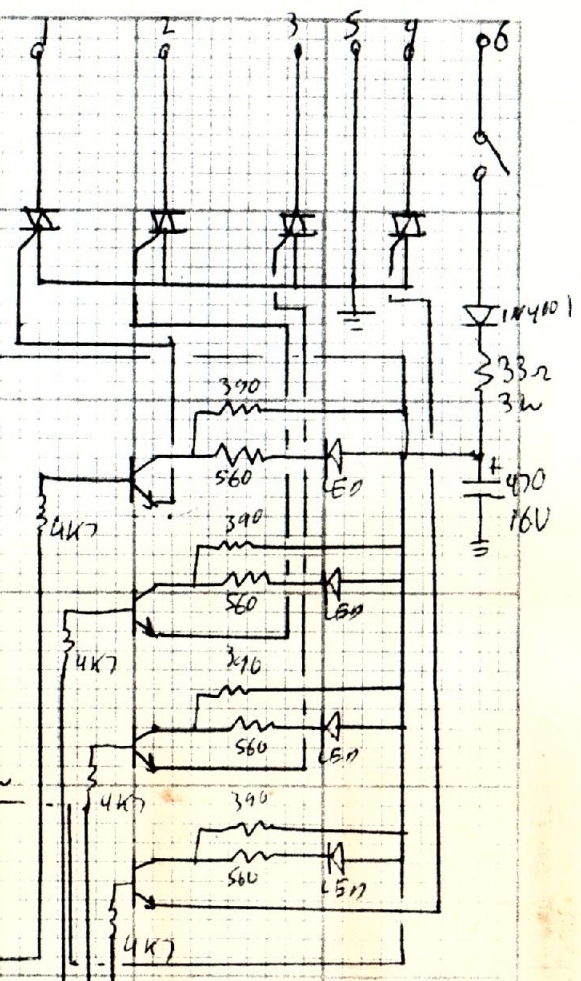 1 2 3 5 4 6
1N4001
33Ω
3W
390
560
LED
+
470
16V
4K7
390
560
LED
4K7
390
560
LED
4K7
390
560
LED
4K7